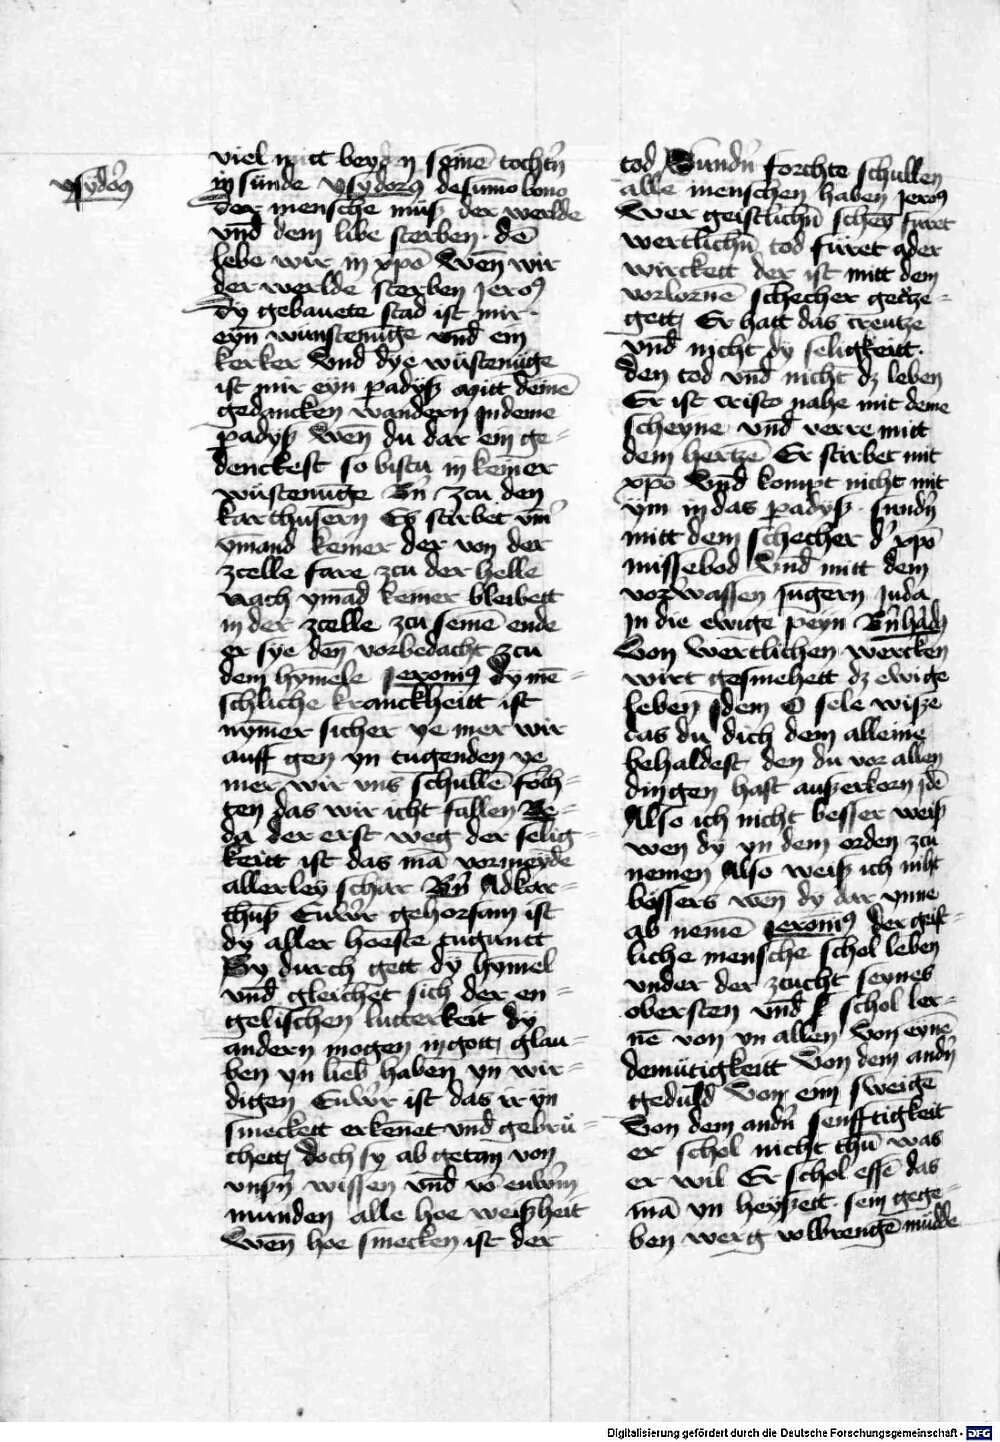 ysydorꝰ
viel mitt beyden seinē tochtn̄
in sünde ysydorꝰ de sum̄o bono
Der mensche mus der werlde
vnd dem libe sterben · dē
lebe wir in xp̄o Wen̄ wir
der werlde sterben Jeroꝰ
Dy gebauete stad ist mir ·
eyn wünstenūge vnd ein
kerker Vnd dye wüstenūge
ist mir eyn padyß Mitt deinē
gedancken wandern in deme
padyß Wen̄ du dar ein ge=
denckest so bistu in keiner
wüstenūge Bn̄ zcu den
karthusern Es stirbet vm̄
ymand keiner der von der
zcelle fare zcu der helle
Nach ymād keiner bleibett
in der zcelle zcu seinē ende
er sye den vorbedacht zcu
dem hymele Jeronīꝰ dy mē=
schliche kranckheitt ist
nym̄er sicher ye mer wir
auff gen yn tugenden ye
mer wir vns schullē förch=
gen das wir icht fallen Be=
da der erst weg der selig=
keitt ist das mā vormeyde
allerley schar Bn̄ Ad kar=
thuß Euwr̄ gehorsam ist
dy aller hoeste tuguntt
Sy durch gett dy hymel
vnd gleichet sich der en=
gelischen lutterkeit dy
andern mogen in gott glau=
ben yn lieb haben yn wir=
digen Euwr̄ ist das ir yn
smeckett erkenet vnd gebrů=
chett doch sy ab getan von
vnsn̄ wissen vnd vō euwrm̄
munden alle hoe weißheit
Wen̄ hoe smecken ist der
tod Sundn̄ forchte schullen
alle menschen haben Jeroꝰ
Wer geistlichn̄ schey furet
wertlichn̄ tod füret ader
wirckett der ist mitt dem
vorlornē schecher getze=
gett Er hatt das creutze
vnd nicht dy seligkeitt ·
den tod vnd nicht dz leben
Er ist cristo nahe mit deme
scheyne vnd verre mitt
dem hertzē Er stirbet mit
xp̄o Vnd kompt nicht mit
ym in das padyß · sundn̄
mitt dem schecher d' xp̄o
missebod Vnd mitt dem
vorwassen Jungern Juda
in die ewige peyn Bn̄hādꝰ
Von wertlichen wercken
wirt gesmehett dz ewige
leben Jdem O sele wisze
das du dich dem alleine
behaldest den du vor allen
dingen hast auszerkorn Jdē
Also ich nicht besser weiß
wen dy yn dem orden zcu
nemen Also weiß ich niht
bössers wen̄ dy dar ynne
ab nemē Jeronīꝰ der geist=
liche mensche schol leben
vnder der zcucht seynes
obersten vnd schol ler=
nē von yn allen Von eynē
demütigkeitt Von dem andn̄
geduld Von eim sweigē
Von dem andn̄ senfftigkeit
er schol nicht thū was
er wil Er schol essē das
mā yn heyszett · sein gege=
ben werg volbrengē müdde